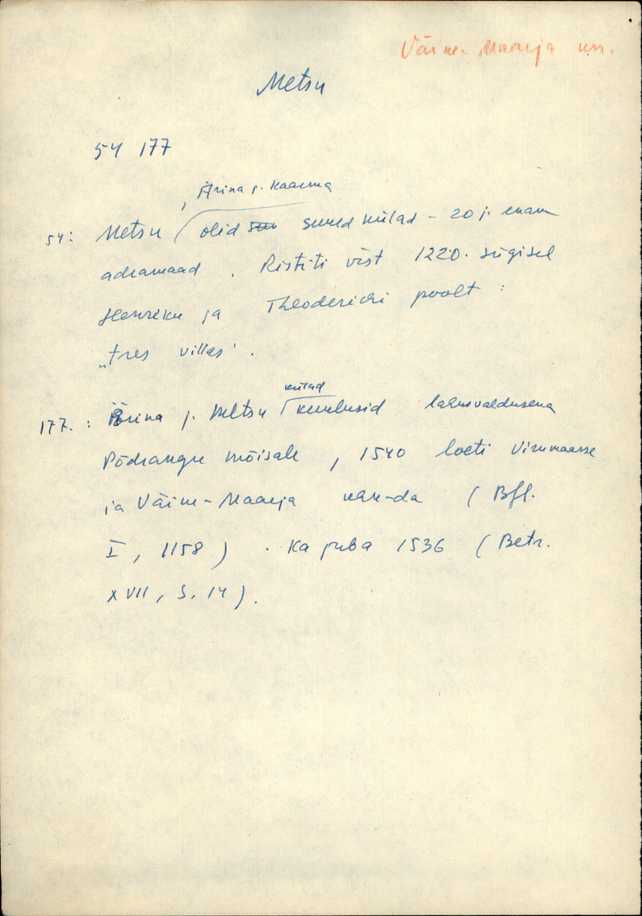 Väike-Maarja krs.
Metsu
54 177
, Ärina j. Kaarma
54: Metsu olid suured külad - 20 j. enam
adramaad. Ristiti vist 1220. sügisel
Henriku ja Theoderichi poolt:
„tres villas".
külad
177.: Ärina j. Metsu kuulusid läänivaldusena
Põdrangu mõisale, 1540 loeti Virumaasse
ja Väike-Maarja (Bfl.
I, 1158). Ka juba 1536 (Beitr.
XVII, S. 14).